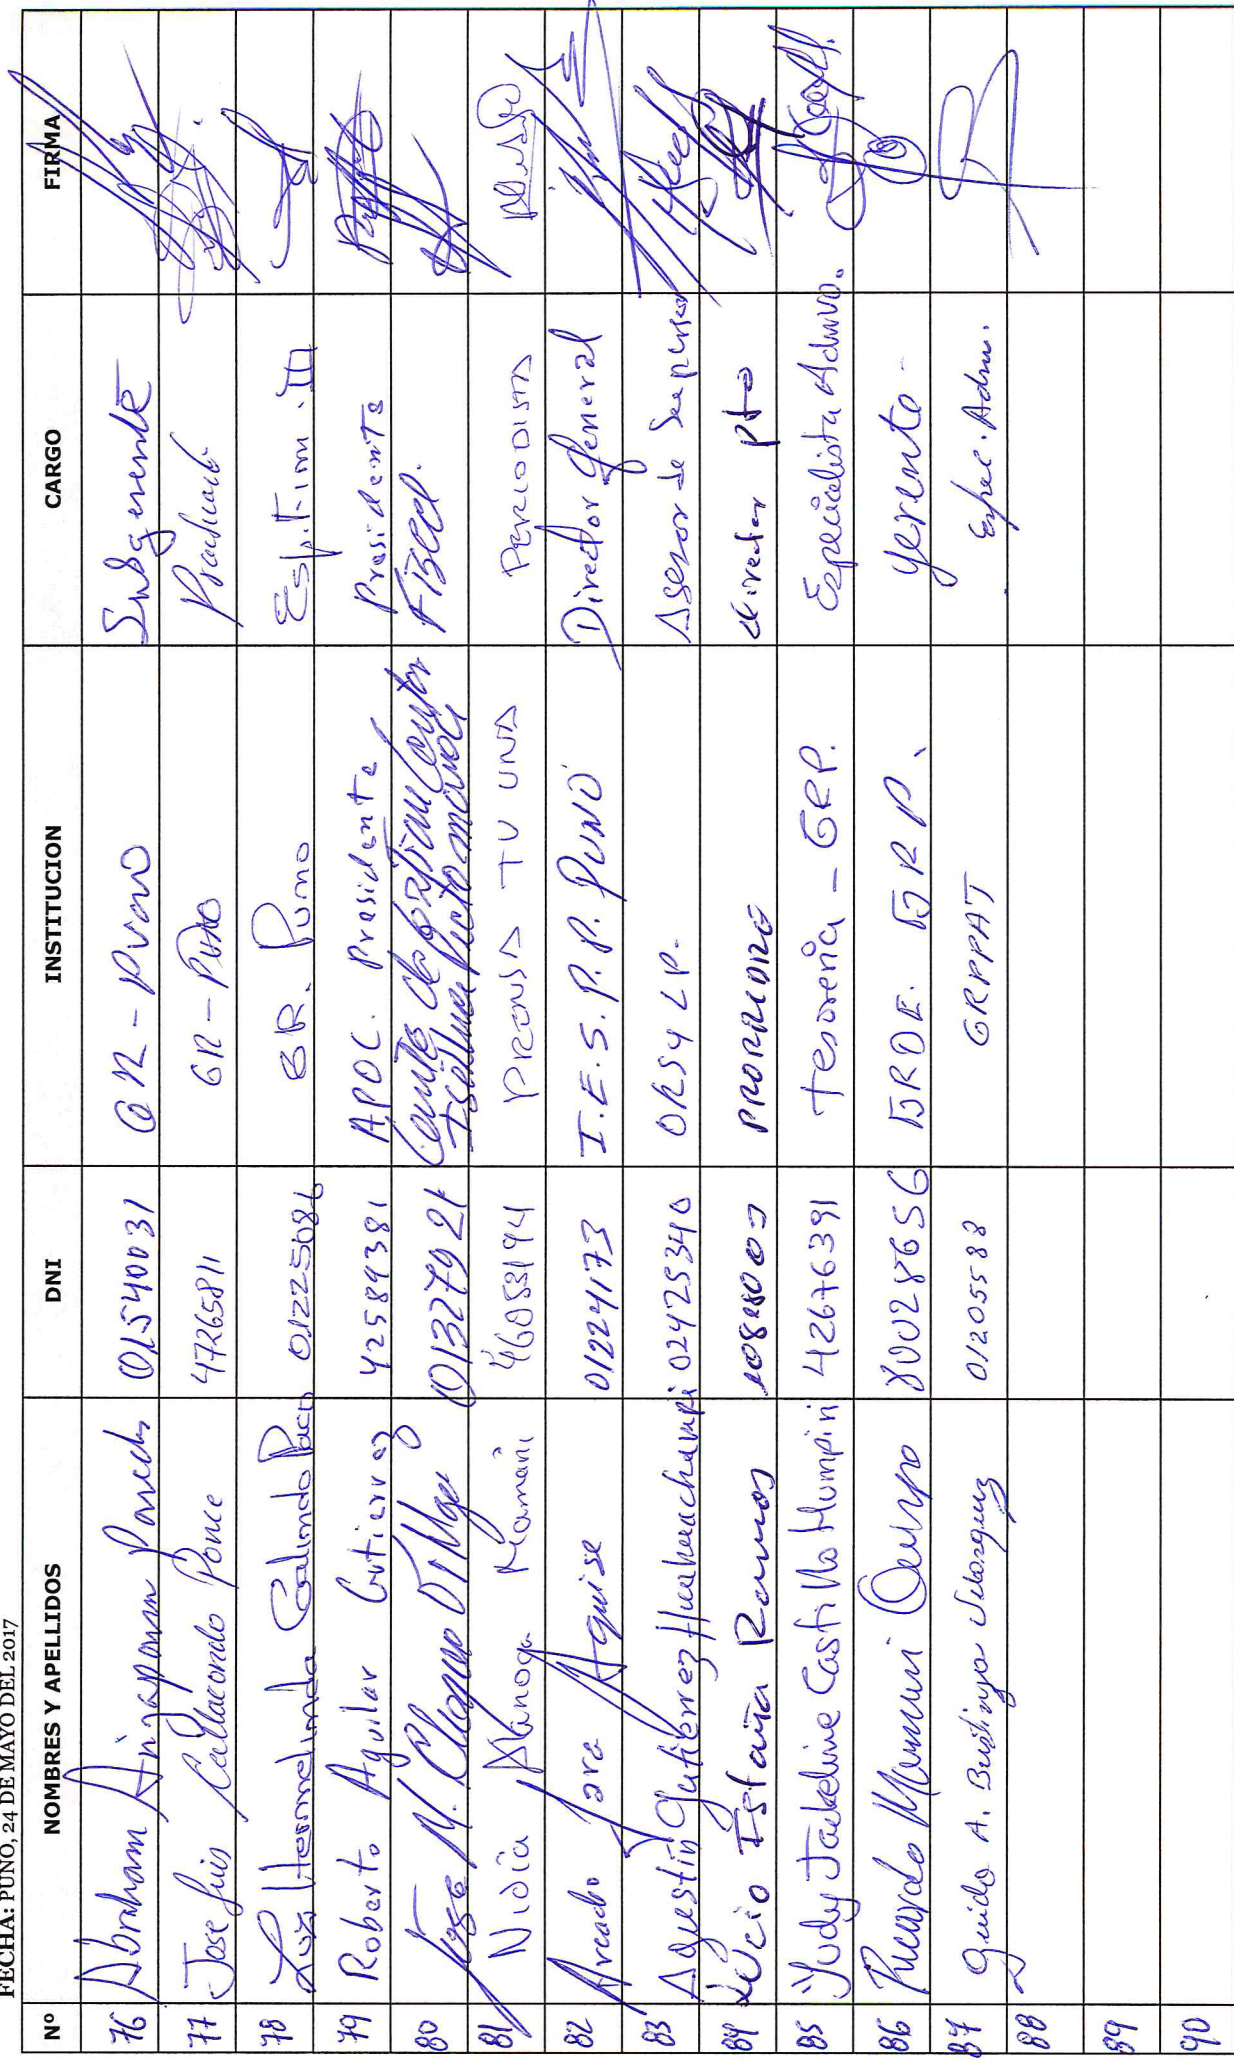 FECHA: PUNO, 24 DE MAYO DEL 2017
Nº NOMBRES Y APELLIDOS DNI INSTITUCION CARGO FIRMA
76 Abraham 01540031 GR - Puno Subgerente
77 Jose Luis Callacondo Ponce 47265811 GR - Puno
78 Luz Hermelinda Galindo Paco 01225086 GR. Puno Esp. Fim. III
79 Roberto Aguilar Gutierrez 42589381 APOC. Presidente Presidente
80 Jose M. 01327921 Comite de
81 Nidia Mamani 46053194 PRENSA TV UNA PERIODISTA
82 Arcadio Jara Aguise 01224173 I.E.S.P.P. PUNO Director General
83 Agustin Gutierrez Huahuachampi 02425340 ORSyLP. Asesor de
84 Lucio Istaña Ramos director pto
85 Yudy Jackeline Castillo Humpiri 42676391 Tesoreria - GRP. Especialista Admvo.
86 Ricardo Mamani 80028656 GRDE. GRP. gerente -
87 Guido A. Bustinza Velazquez 01205588 GRPPAT Espec. Adm.
88
89
90